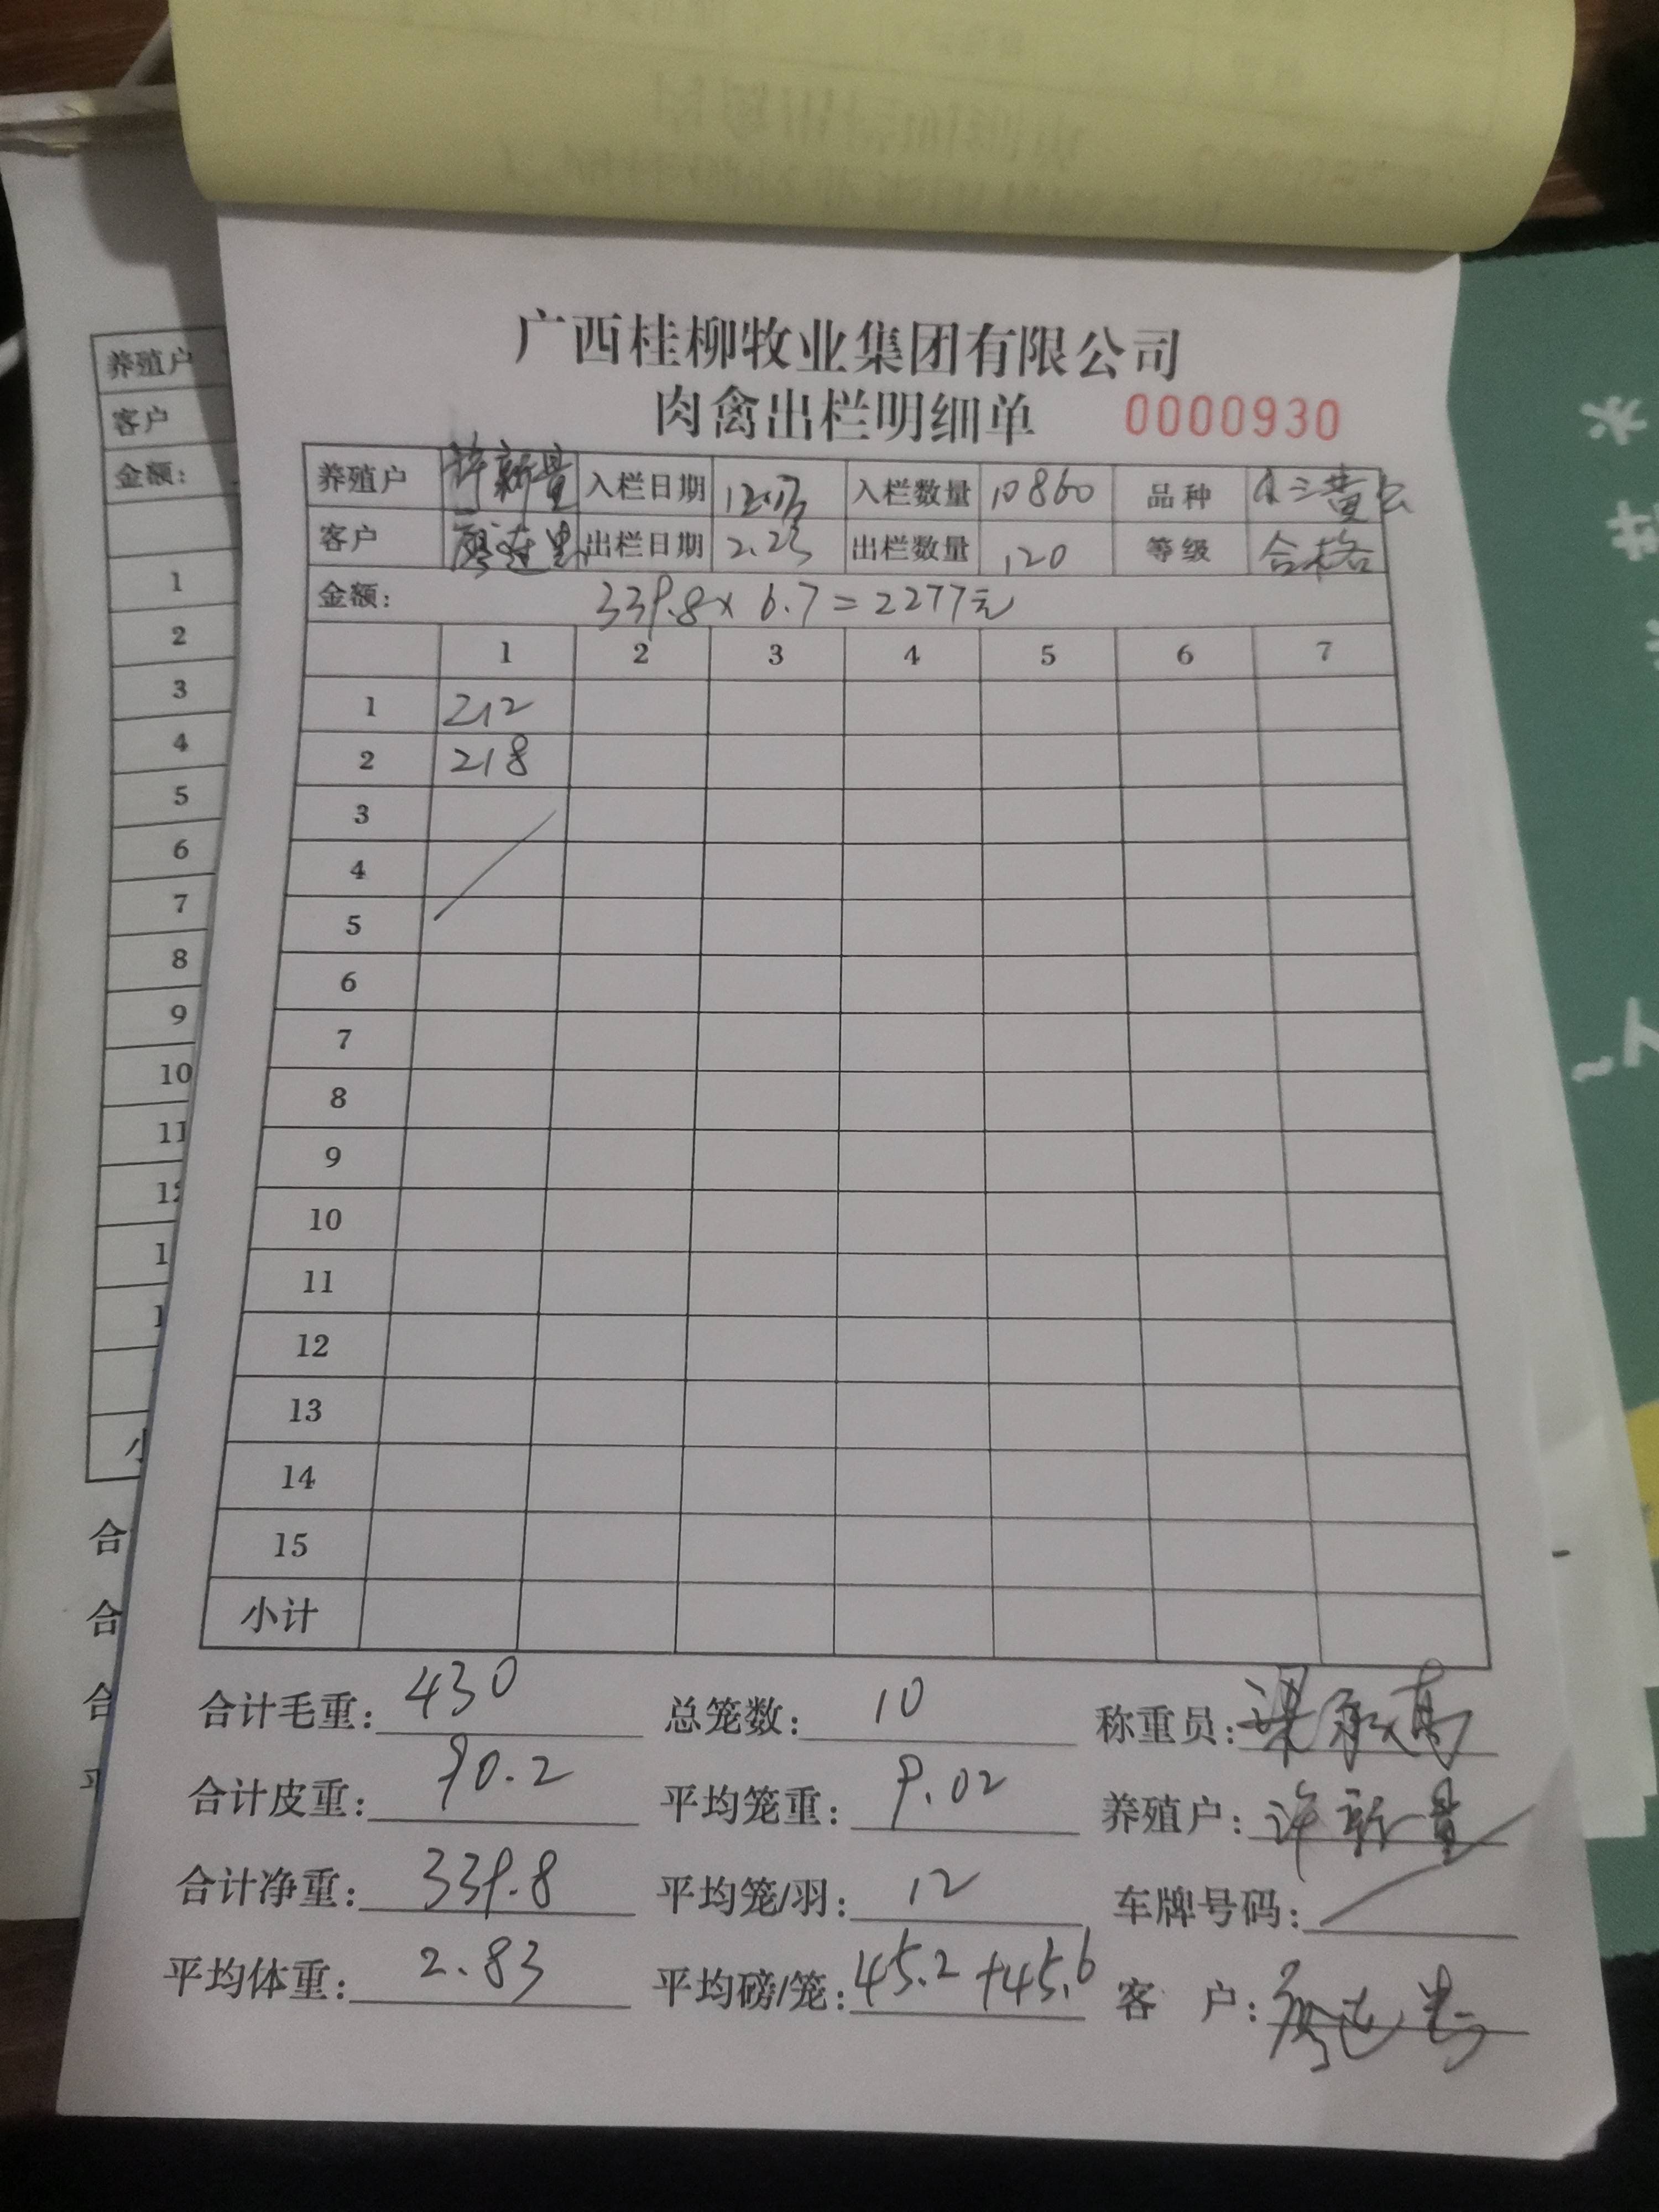 广西桂柳牧业集团有限公司
肉禽出栏明细单 0000930
养殖户 许新量 入栏日期 入栏数量 10860 品种
客户 出栏日期 2.23 出栏数量 120 等级 合格
金额: 339.8 x 6.7 = 2277元
1 2 3 4 5 6 7
1 212
2 218
3
4
5
6
7
8
9
10
11
12
13
14
15
小计
合计毛重: 430 总笼数: 10 称重员:
合计皮重: 90.2 平均笼重: 9.02 养殖户: 许新量
合计净重: 339.8 平均笼/羽: 12 车牌号码:
平均体重: 2.83 平均磅/笼: 45.2 + 45.6 客 户:
养殖户
客户
金额:
1
2
3
4
5
6
7
8
9
10
11